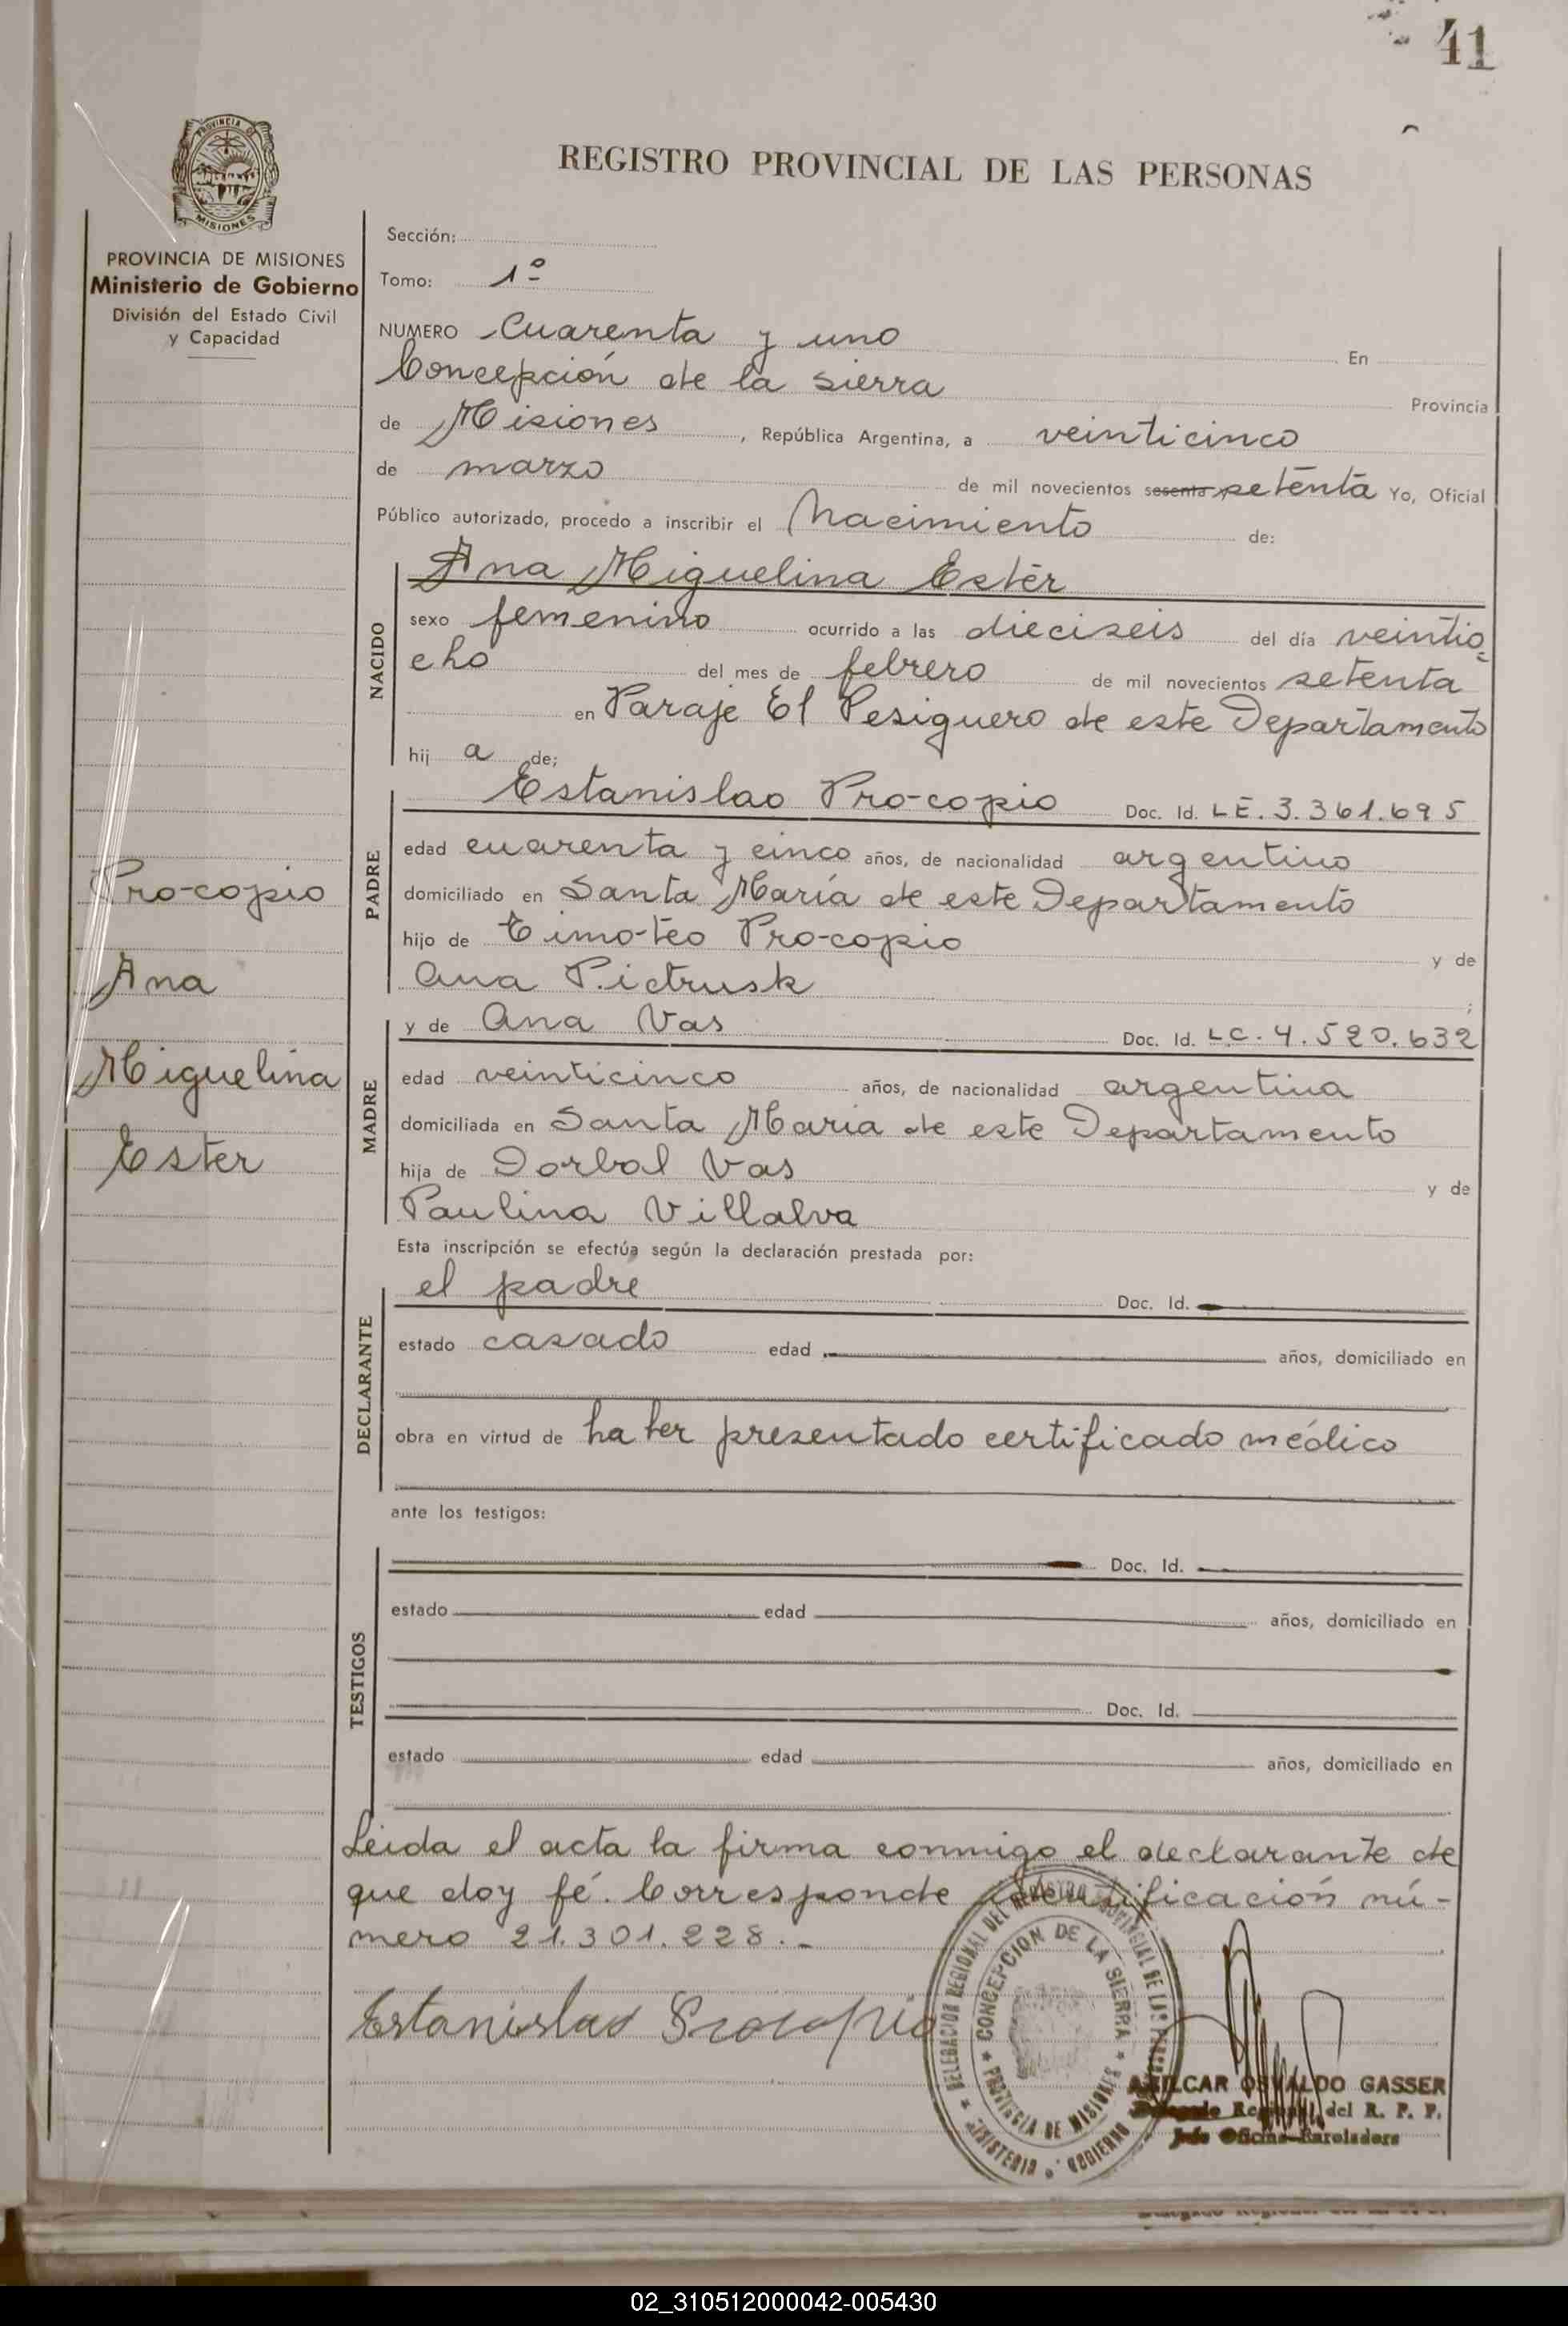 41
REGISTRO PROVINCIAL DE LAS PERSONAS
PROVINCIA DE MISIONES
Ministerio de Gobierno
División del Estado Civil
y Capacidad
Sección:
Tomo: 1º
NUMERO Cuarenta y uno En
Concepción de la sierra Provincia
de Misiones, República Argentina, a veinticinco
de marzo de mil novecientos sesenta setenta Yo, Oficial
Público autorizado, procedo a inscribir el Nacimiento de:
NACIDO
Ana Miguelina Ester
sexo femenino ocurrido a las dieciseis del día veintio
cho del mes de febrero de mil novecientos setenta
en Paraje El Pesiguero de este Departamento
hij a de;
PADRE
Estanislao Procopio Doc. Id. LE. 3.361.695
edad cuarenta y cinco años, de nacionalidad argentino
domiciliado en Santa María de este Departamento
hijo de Timoteo Procopio y de
Ana Pictrusk ;
MADRE
y de Ana Vas Doc. Id. LC. 4.520.632
edad veinticinco años, de nacionalidad argentina
domiciliada en Santa Maria de este Departamento
hija de Dorbal Vas y de
Paulina Villalva
Procopio
Ana
Miguelina
Ester
Esta inscripción se efectúa según la declaración prestada por:
DECLARANTE
el padre Doc. Id.
estado casado edad años, domiciliado en
obra en virtud de haber presentado certificado médico
ante los testigos:
TESTIGOS
Doc. Id.
estado edad años, domiciliado en
Doc. Id.
estado edad años, domiciliado en
Leida el acta la firma conmigo el declarante de
que doy fé. Corresponde identificación nú-
mero 21.301.228.-
Estanislao Procopio
DELEGACION REGIONAL DEL REGISTRO PROVINCIAL DE LAS PERSONAS
CONCEPCION DE LA SIERRA
PROVINCIA DE MISIONES
MINISTERIO GOBIERNO
AMILCAR OSVALDO GASSER
Delegado Regional del R. P. P.
Jefe Oficina Enroladora
02_310512000042-005430